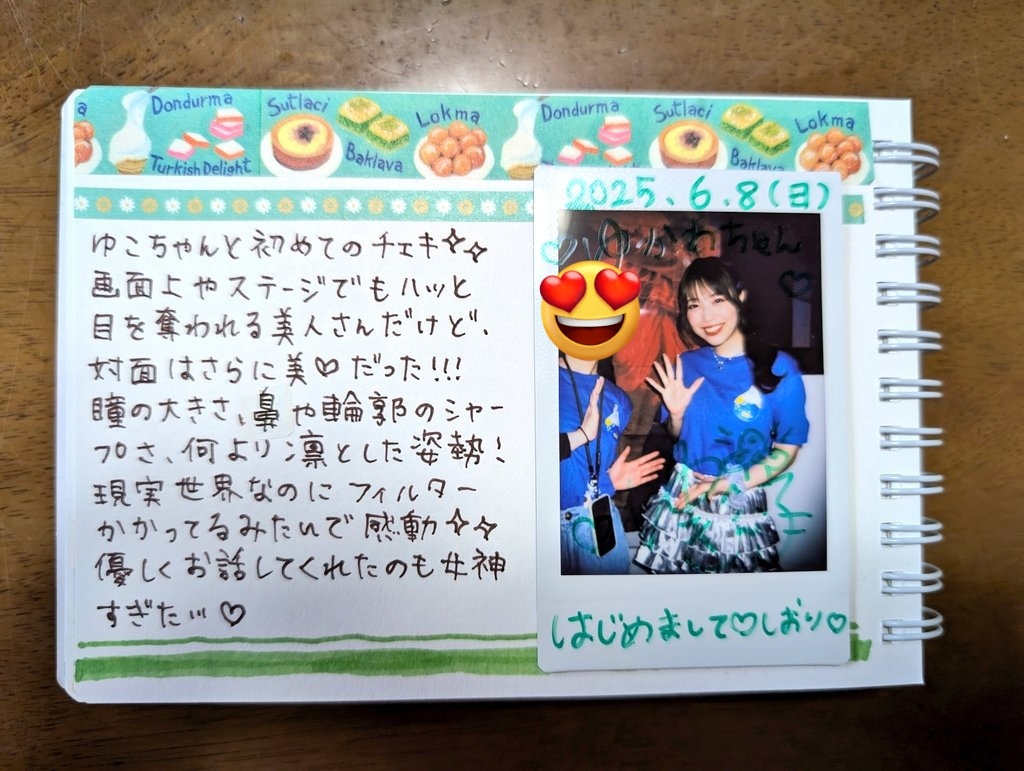 a
Dondurma
Turkish Delight
Sutlaci
Baklava
Lokma
Dondurma
Sutlaci
Baklava
Lokma
ゆこちゃんと初めてのチェキ✧✧
画面上やステージでもハッと
目を奪われる美人さんだけど、
対面はさらに美♡だった!!!
瞳の大きさ、鼻や輪郭のシャー
プさ、何より凛とした姿勢!
現実世界なのにフィルター
かかってるみたいで感動✧✧
優しくお話してくれたのも女神
すぎた… ♡
2025.6.8(日)
はじめまして♡しおり♡